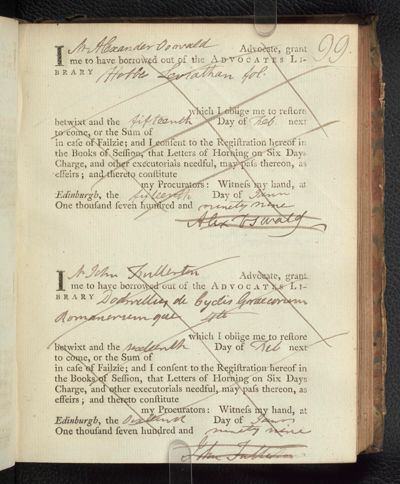 99.
I Mr Alexander Oswald Advocate, grant
me to have borrowed out of the ADVOCATES LI-
BRARY Hobbs Leviathan fol.
which I oblige me to reſtore
betwixt and the fifteenth Day of Feb next
to come, or the Sum of
in caſe of Failzie; and I conſent to the Regiſtration hereof in
the Books of Seſſion, that Letters of Horning on Six Days
Charge, and other executorials needful, may paſs thereon, as
effeirs; and thereto conſtitute
my Procurators: Witneſs my hand, at
Edinburgh, the fifteenth Day of Janry
One thouſand ſeven hundred and ninety nine
Alex Oswald
I Mr John Fullerton Advocate, grant
me to have borrowed out of the ADVOCATES LI-
BRARY Dodwellius de Cyclis Graecorum
Romanorumque 4to
which I oblige me to reſtore
betwixt and the sixteenth Day of Feb next
to come, or the Sum of
in caſe of Failzie; and I conſent to the Regiſtration hereof in
the Books of Seſſion, that Letters of Horning on Six Days
Charge, and other executorials needful, may paſs thereon, as
effeirs; and thereto conſtitute
my Procurators: Witneſs my hand, at
Edinburgh, the Sixteenth Day of Janry
One thouſand ſeven hundred and ninety nine
John Fullerton